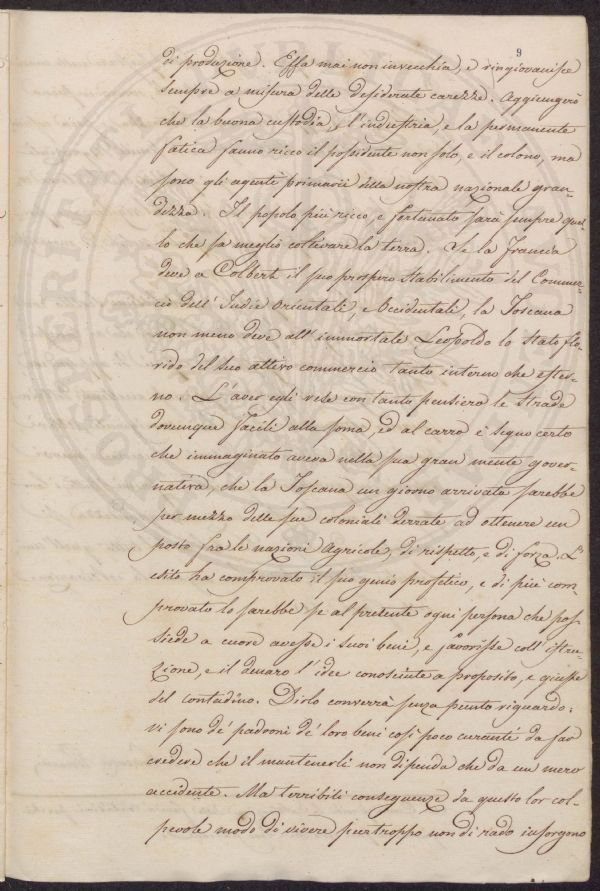 9
di produzione. Essa mai non invecchia, e ringiovanisce
sempre a misura delle desiderate carezze. Aggiungerò
che la buona custodia, l'industria, e la permanente
fatica fanno ricco il possidente non solo, e il colono, ma
sono gli agenti primarii della nostra nazionale gran-
dezza. Il popolo più ricco, e fortunato sarà sempre quel-
lo che sa meglio coltivare la terra. Se la Francia
deve a Colbert il suo prospero stabilimento del Commer-
cio dell'Indie Orientali, e Occidentali, la Toscana
non meno deve all'immortale Leopoldo lo stato flo-
rido del suo attivo commercio tanto interno che ester-
no. L'aver egli rese con tanto pensiero le strade
dovunque facili alla soma, ed al carro è segno certo
che immaginato aveva nella sua gran mente gover-
nativa, che la Toscana un giorno arrivata sarebbe
per mezzo delle sue coloniali derrate ad ottenere un
posto fra le nazioni agricole, di rispetto, e di forza. L'
esito ha comprovato il suo genio profetico, e di più com-
provato lo sarebbe se al presente ogni persona che pos-
siede a cuore avesse i suoi beni, e favorisse coll'istru-
zione, e il denaro l'idee conosciute a proposito, e giuste
del contadino. Dirlo converrà senza punto riguardo:
vi sono de' padroni de' loro beni così poco curanti da far
credere che il mantenerli non dipenda che da un mero
accidente. Ma terribili conseguenze da questo lor col-
pevole modo di vivere purtroppo non di rado insorgono